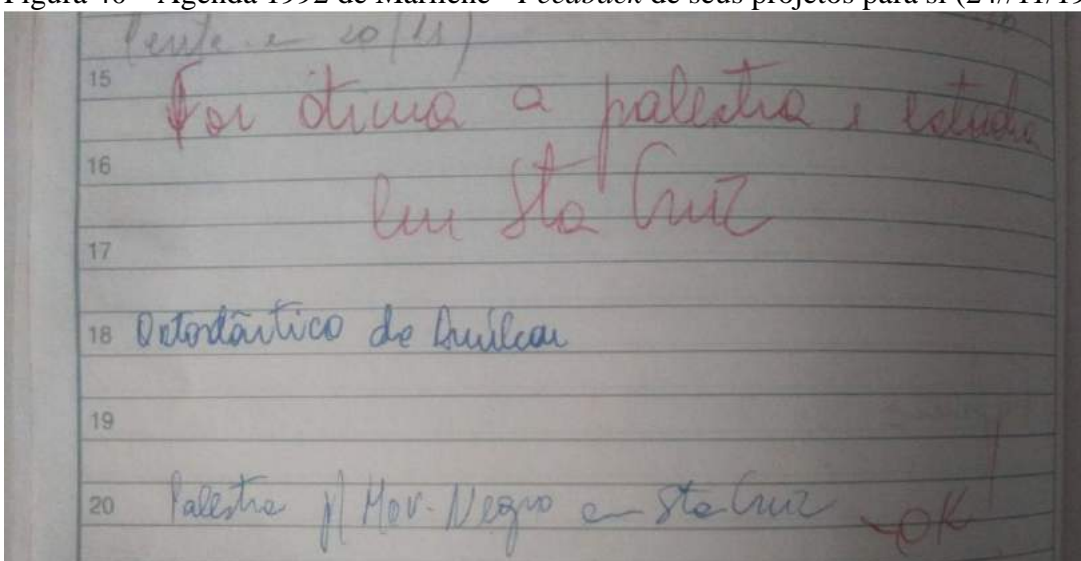 Figura 40 – Agenda 1992 de Marilene - Feedback de seus projetos para si (24//11/19
e 20/11)
15
Foi ótima a palestra e estudo
16
em Sta Cruz
17
18 Ortodôntico de Amílcar
19
20 Palestra p/ Mov. Negro em Sta Cruz - OK!